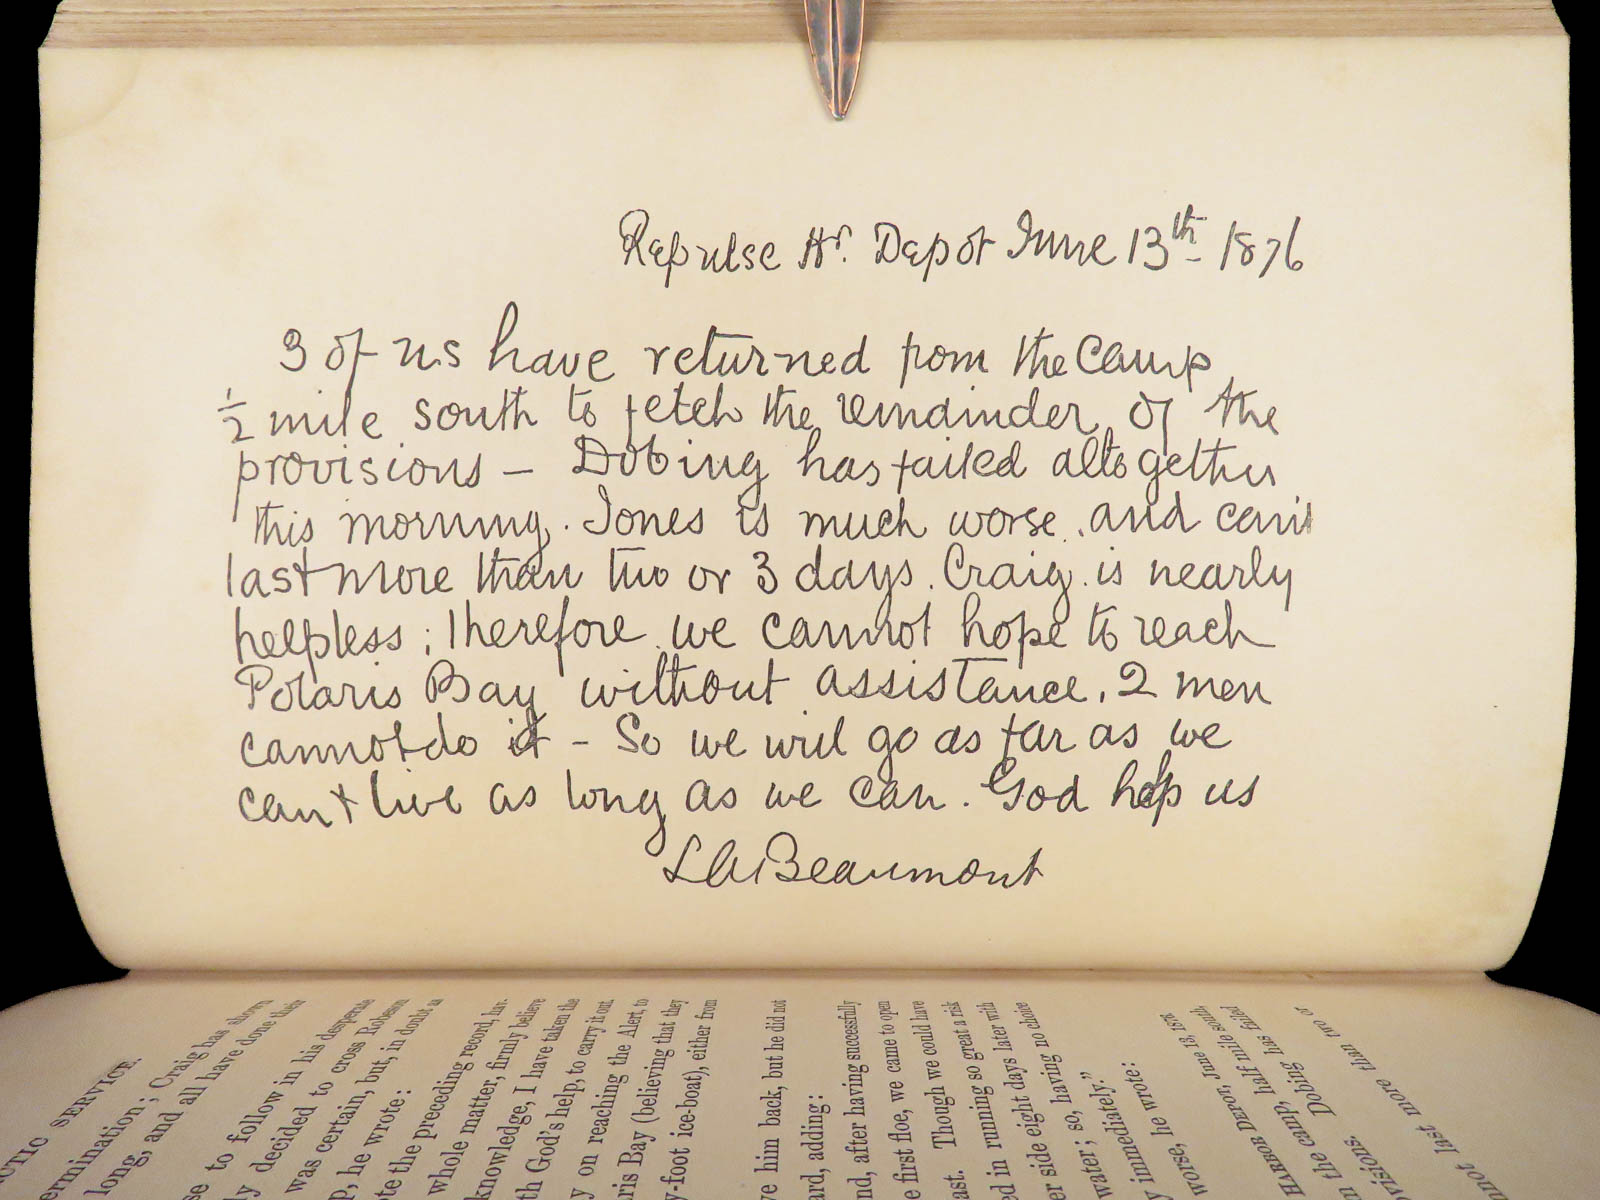 Repulse Hr. Depot June 13th 1876
3 of us have returned from the Camp
½ mile south to fetch the remainder of the
provisions – Dobing has failed altogether
this morning. Jones is much worse. and can't
last more than two or 3 days. Craig. is nearly
helpless; Therefore we cannot hope to reach
Polaris Bay without assistance. 2 men
cannot do it – So we will go as far as we
can & live as long as we can. God help us
LABeaumont
CTIC SERVICE.
ermination; Craig has shown
long, and all have done their
se to follow in his desperate
ly decided to cross Robeson
was certain, but, in doubt as
p, he wrote:
ote the preceding record, har-
whole matter, firmly believe
knowledge, I have taken the
th God's help, to carry it out
y on reaching the Alert, to
ris Bay (believing that they
y-foot ice-boat), either from
ve him back, but he did not
ard, adding:
nd, after having successfully
e first floe, we came to open
ast. Though we could have
ed in running so great a risk
er side eight days later with
water; so, having no choice
immediately."
y he wrote:
worse,
HARBOR DEPOT, June 13, 1876.
m the camp, half mile south,
visions. Dobing has failed
nnot last more than two or